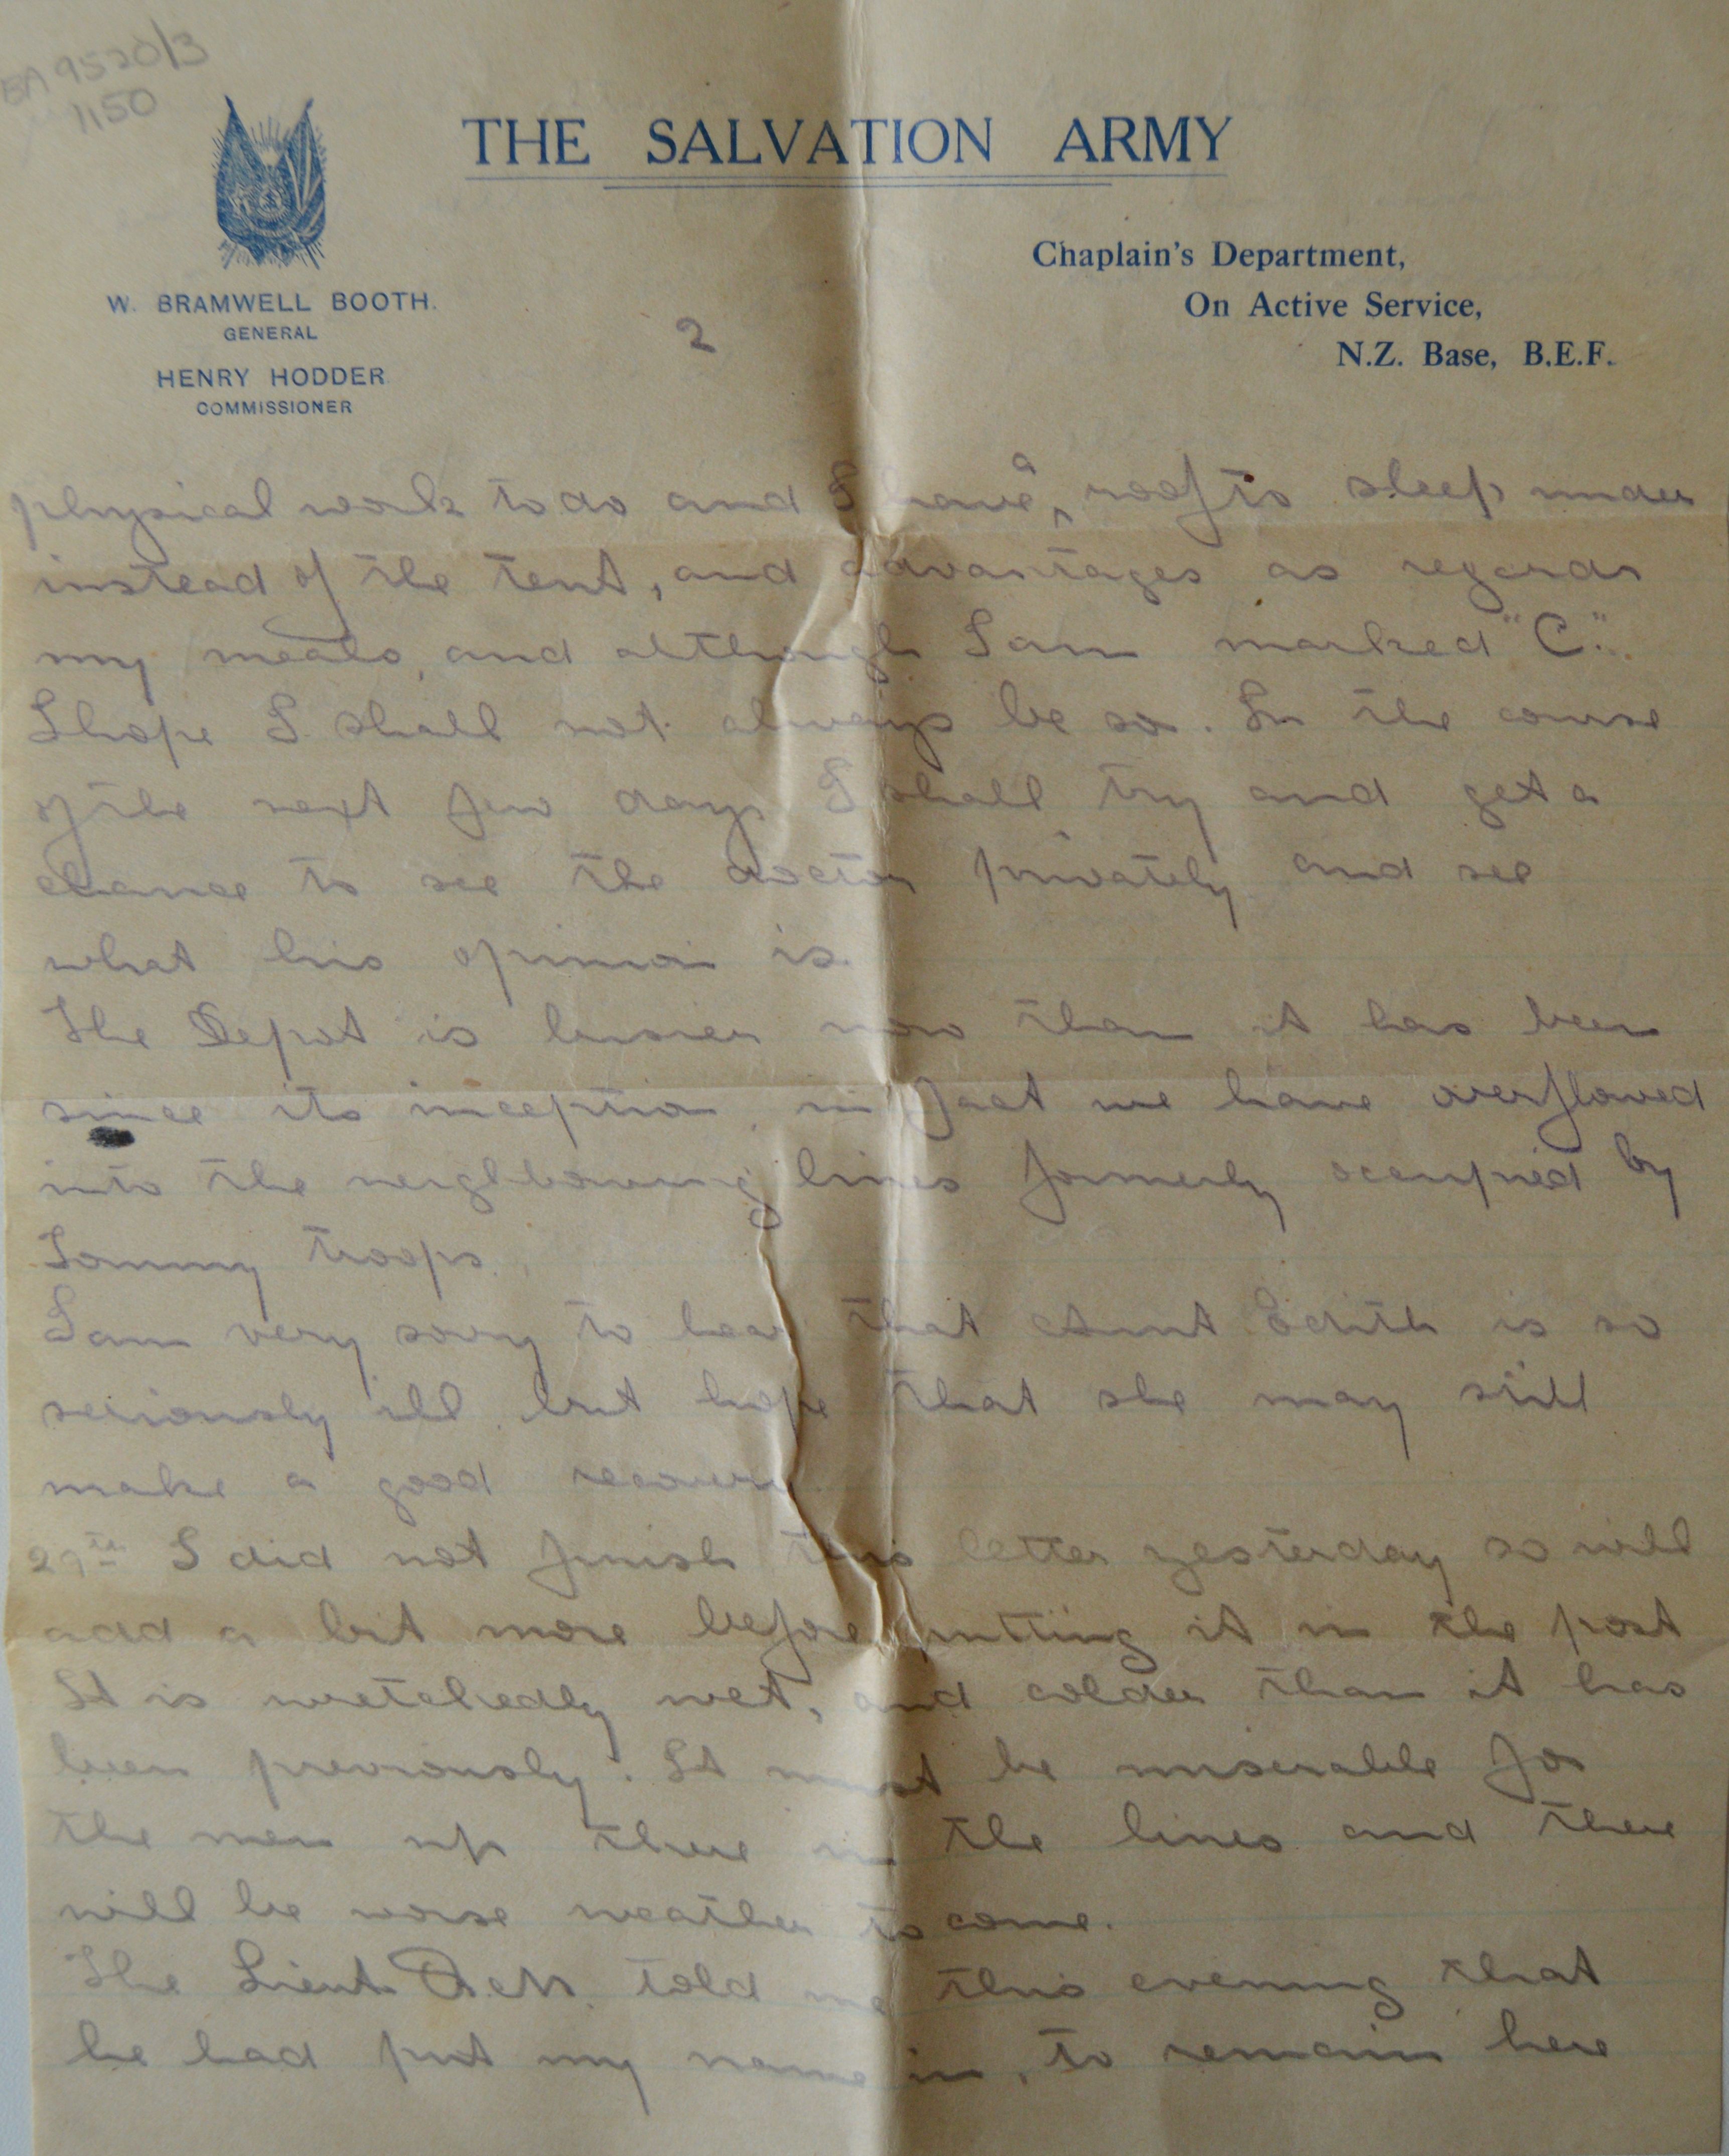 BA 9520/3
1150
THE SALVATION ARMY
W. BRAMWELL BOOTH.
GENERAL
HENRY HODDER
COMMISSIONER
Chaplain's Department,
On Active Service,
N.Z. Base, B.E.F.
2
physical work to do and I have a roof to sleep under
instead of the tent, and advantages as regards
my meals, and although I am marked "C".
I hope I shall not always be so. In the course
of the next few days I shall try and get a
chance to see the doctor privately and see
what his opinion is.
The Depot is busier now than it has been
since its inception, in fact we have overflowed
into the neighbouring lines formerly occupied by
Tommy troops.
I am very sorry to hear that Aunt Edith is so
seriously ill but hope that she may still
make a good recovery.
29th I did not finish this letter yesterday so will
add a bit more before putting it in the post
It is wretchedly wet, and colder than it has
been previously. It must be miserable for
the men up there in the lines and there
will be worse weather to come.
The Lieut. told me this evening that
he had put my name in, to remain here